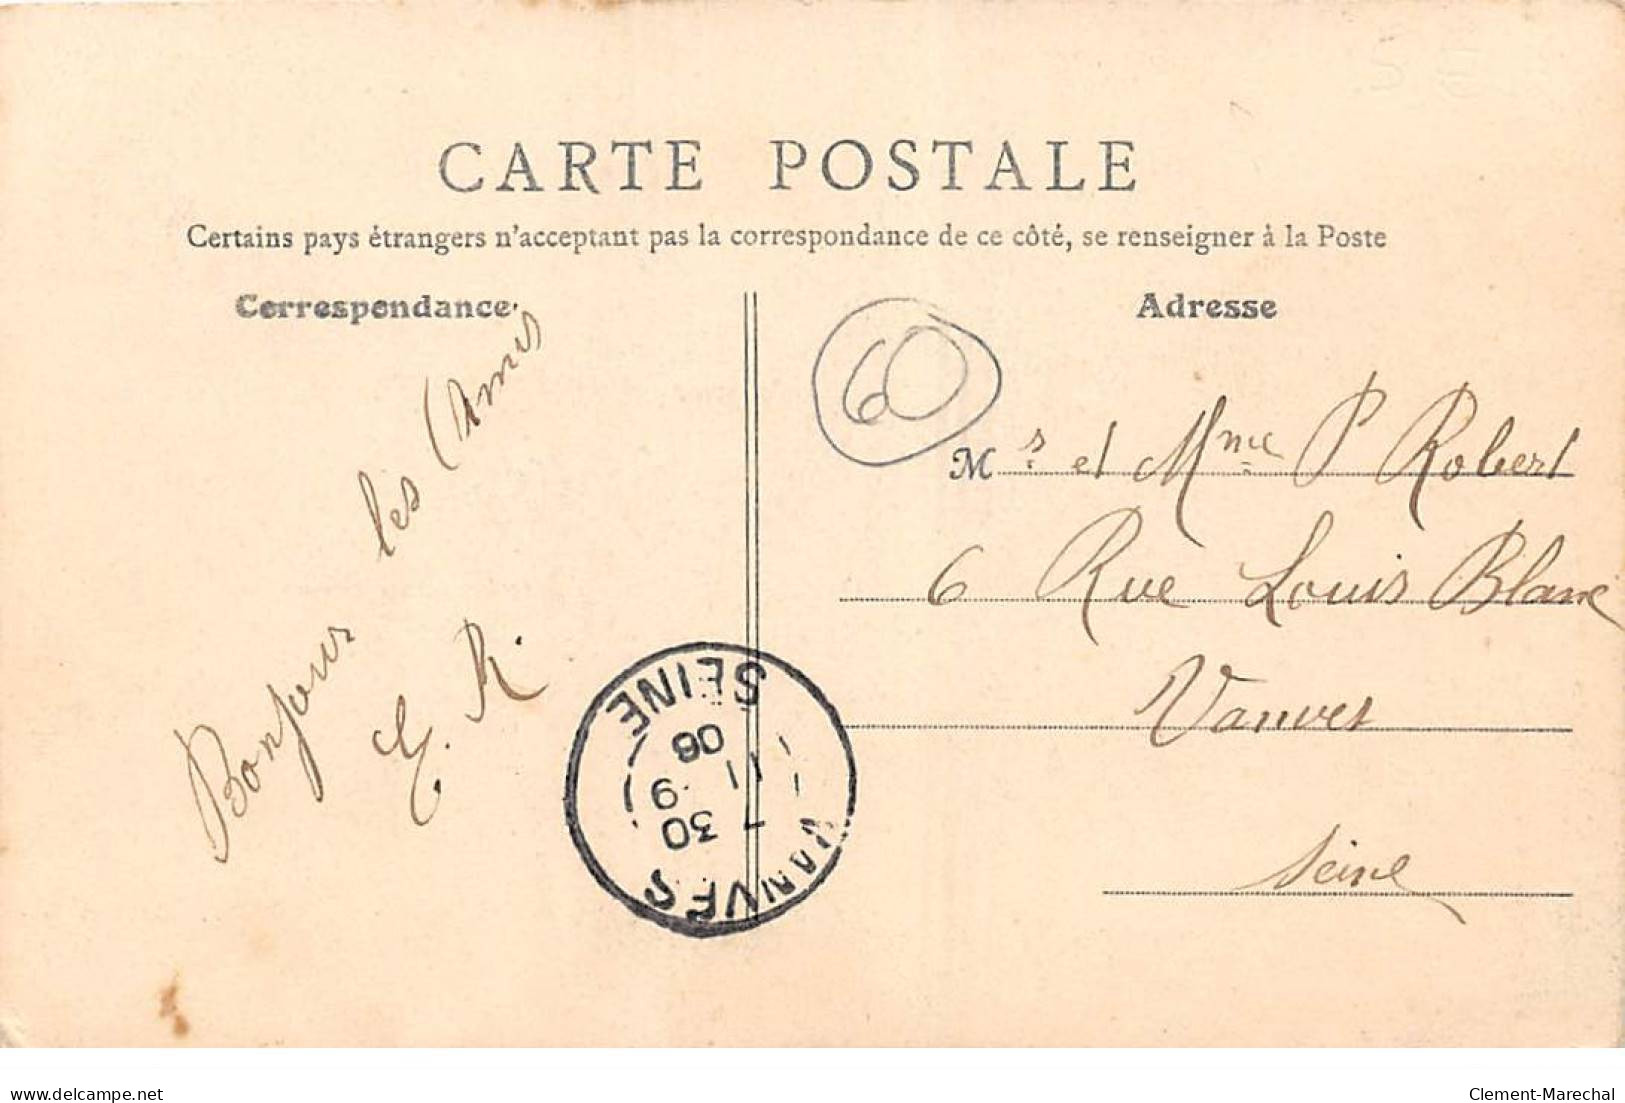 CARTE POSTALE
Certains pays étrangers n'acceptant pas la correspondance de ce côté, se renseigner à la Poste
Correspondance
Adresse
60
Bonjour les Amis
E. R.
Mrs et Mme P Robert
6 Rue Louis Blanc
Vanves
Seine
VANVES
7 30
11 9
06
SEINE
delcampe.net
Clement-Marechal